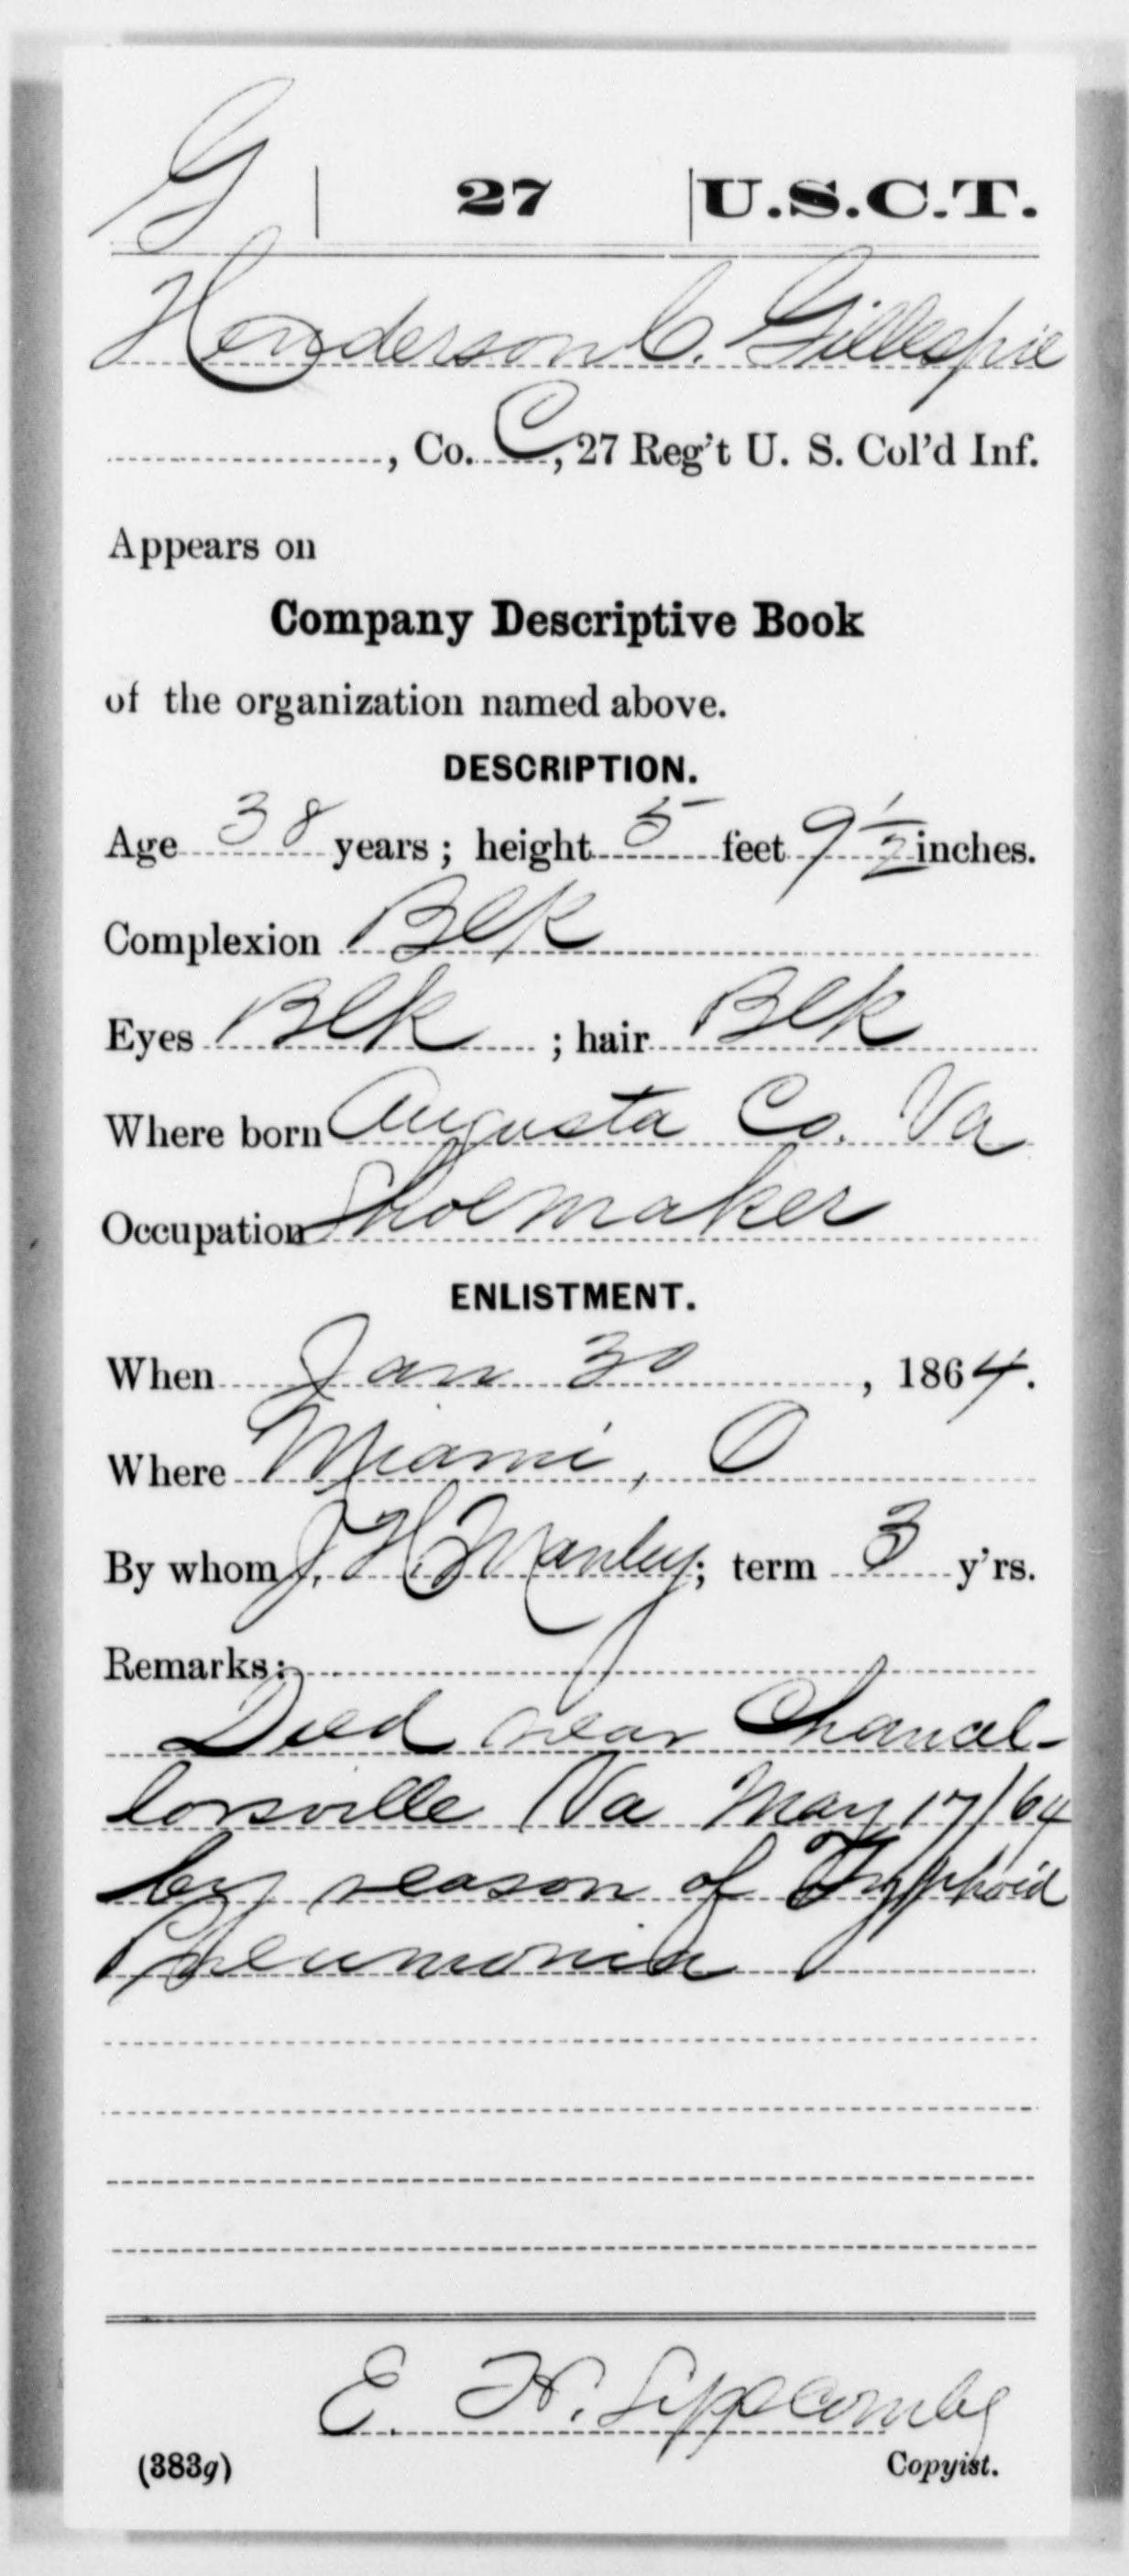 G | 27 | U.S.C.T.
Henderson C. Gillespie
, Co. C, 27 Reg't U. S. Col'd Inf.
Appears on
Company Descriptive Book
of the organization named above.
DESCRIPTION.
Age 38 years; height 5 feet 9 1/2 inches.
Complexion Blk
Eyes Blk ; hair Blk
Where born Augusta Co. Va
Occupation Shoemaker
ENLISTMENT.
When Jan 30, 1864.
Where Miami, O
By whom J. H. Manley; term 3 y'rs.
Remarks:
Died near Chancel-
lorsville Va May 17/64
by reason of Typhoid
Pneumonia
E. H. Lippscomb
(383g) Copyist.